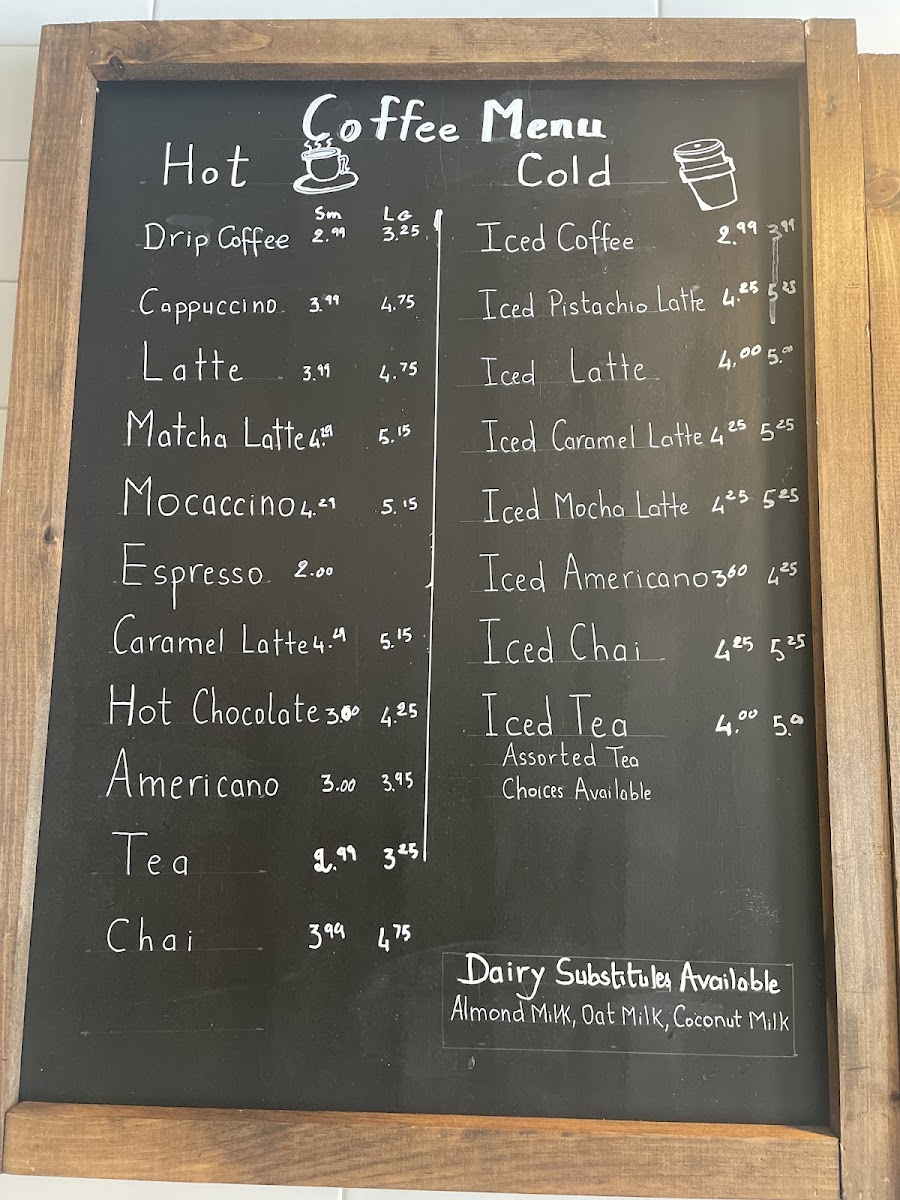 Coffee Menu
Hot
Sm LG
Drip Coffee 2.99 3.25
Cappuccino 3.99 4.75
Latte 3.99 4.75
Matcha Latte 4.29 5.15
Mocaccino 4.29 5.15
Espresso 2.00
Caramel Latte 4.29 5.15
Hot Chocolate 3.00 4.25
Americano 3.00 3.95
Tea 2.99 3.25
Chai 3.99 4.75
Cold
Iced Coffee 2.99 3.99
Iced Pistachio Latte 4.25 5.25
Iced Latte 4.00 5.00
Iced Caramel Latte 4.25 5.25
Iced Mocha Latte 4.25 5.25
Iced Americano 3.60 4.25
Iced Chai 4.25 5.25
Iced Tea 4.00 5.0
Assorted Tea
Choices Available
Dairy Substitutes Available
Almond Milk, Oat Milk, Coconut Milk